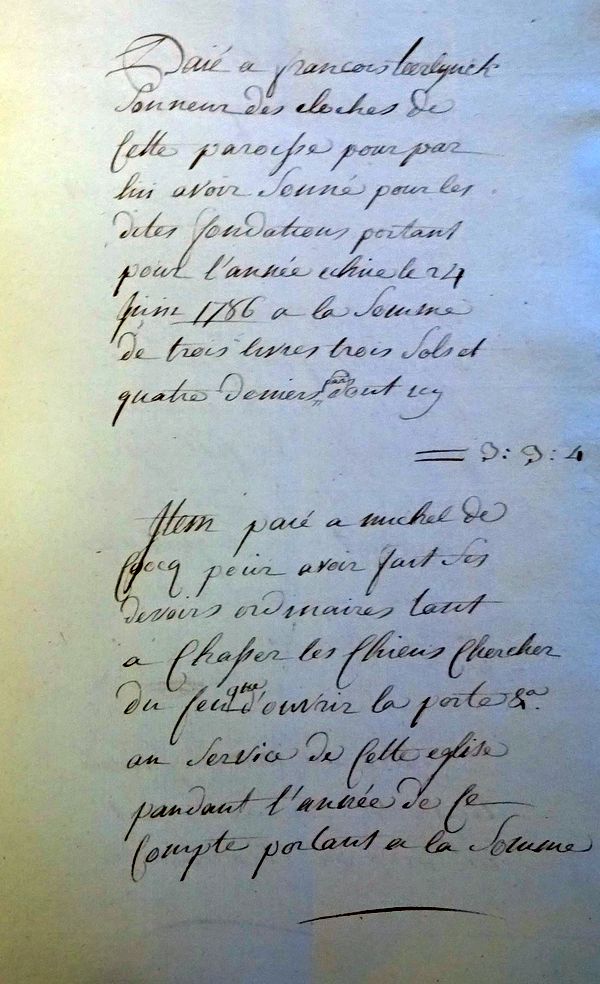 Paié a francois
Sonneur des cloches de
Cette paroisse pour par
lui avoir Sonné pour les
dites fondations portant
pour l'année echue le 24
Juin 1786 a la Somme
de trois livres trois Sols et
quatre deniers dont icy
= 3 : 3 : 4
Item paié a michel de
Cocq pour avoir fait Ses
devoirs ordinaires tant
a Chasser les Chiens Chercher
du feu que d'ouvrir la porte &a.
au Service de Cette eglise
pandant l'année de Ce
Compte portant a la Somme